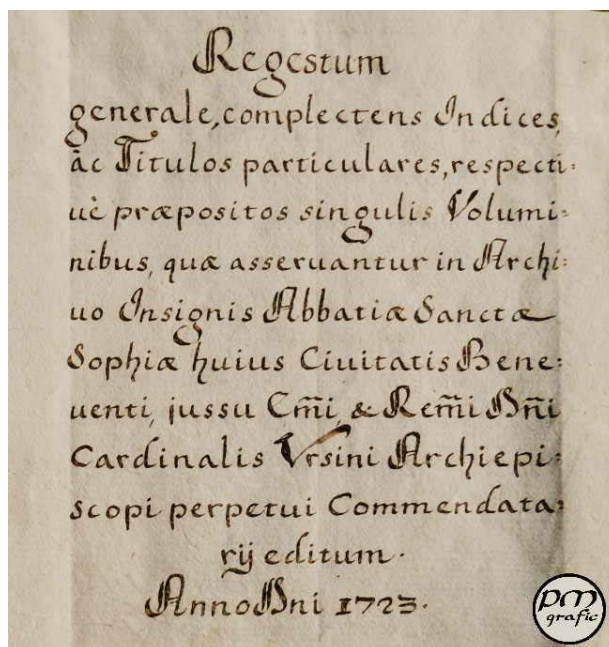 Regestum
generale, complectens Indices,
ac Titulos particulares, respecti:
uè præpositos singulis Volumi:
nibus, quæ asseruantur in Archi:
uo Insignis Abbatiæ Sanctæ
Sophiæ huius Ciuitatis Bene:
uenti, jussu Em̃i, & Rem̃i Dñi
Cardinalis Vrsini Archiepi:
scopi perpetui Commendata:
rij editum.
Anno Dni 1723.
pm
grafic